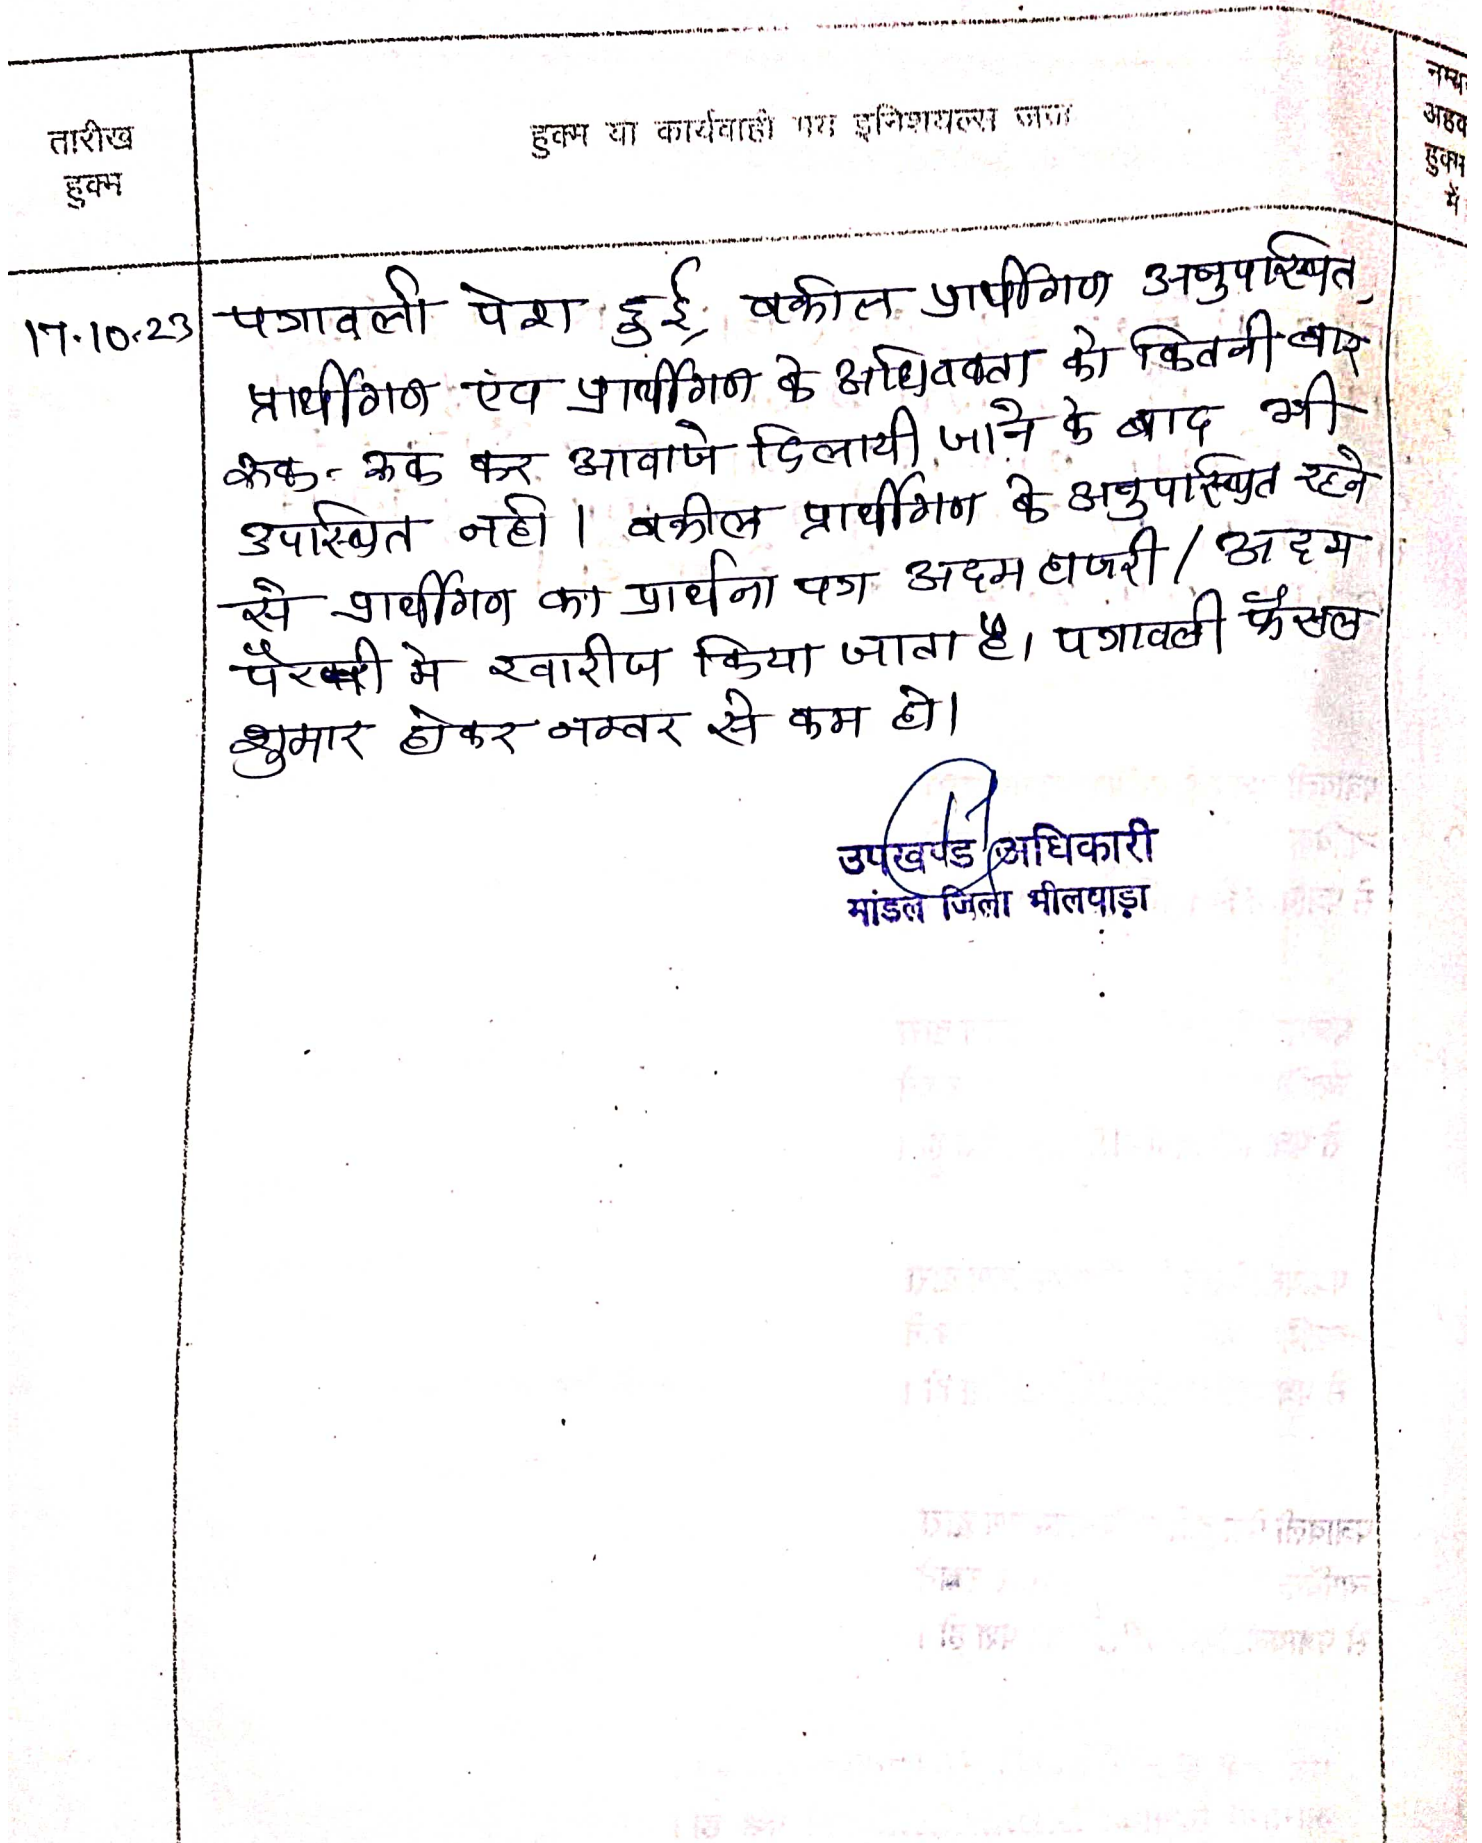 तारीख
हुक्म
हुक्म या कार्यवाही मय इनिशियल्स जज
हुक्म
में
17.10.23
पत्रावली पेश हुई, वकील प्रार्थीगण अनुपस्थित,
प्रार्थीगण एंव प्रार्थीगण के अधिवक्ता को कितनी बार
रूक-रूक कर आवाजे दिलायी जाने के बाद भी
उपस्थित नही। वकील प्रार्थीगण के अनुपस्थित रहने
से प्रार्थीगण का प्रार्थना पत्र अदम हाजरी / अदम
पैरवी मे खारीज किया जाता है। पत्रावली फैसल
शुमार होकर नम्बर से कम हो।
उपखण्ड अधिकारी
मांडल जिला भीलवाड़ा